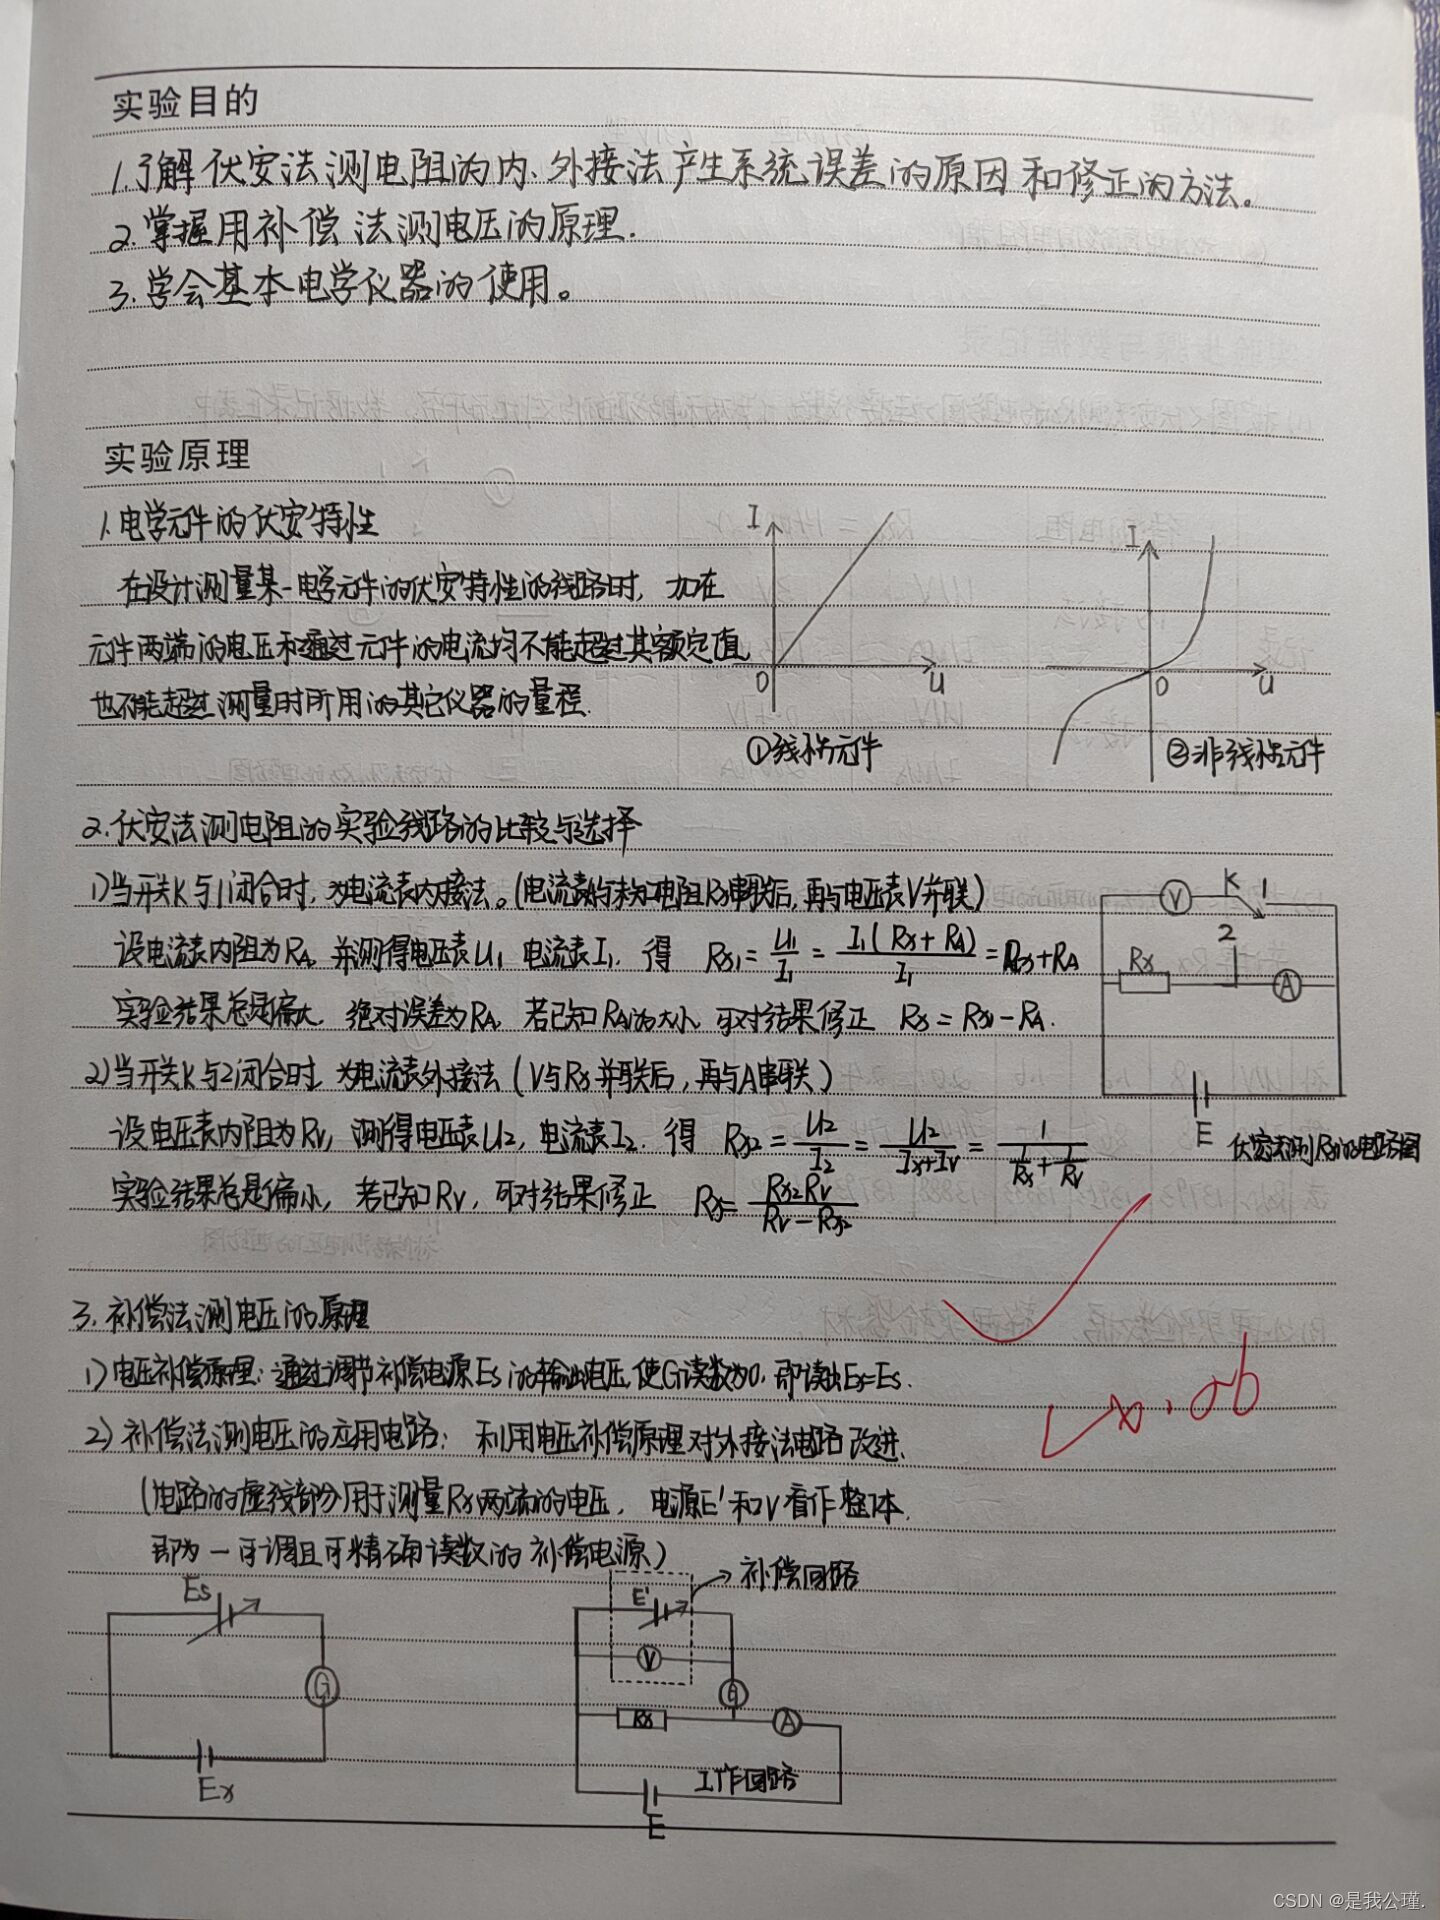 实验目的
1.了解伏安法测电阻的内、外接法产生系统误差的原因和修正的方法。
2.掌握用补偿法测电压的原理.
3.学会基本电学仪器的使用。
实验原理
1.电学元件的伏安特性
在设计测量某一电学元件的伏安特性的线路时，加在
元件两端的电压和通过元件的电流均不能超过其额定值
也不能超过测量时所用的其它仪器的量程.
I
O
U
①线性元件
I
O
U
②非线性元件
2.伏安法测电阻的实验线路的比较与选择
1)当开关K与1闭合时，为电流表内接法。(电流表与未知电阻Rx串联后,再与电压表V并联)
设电流表内阻为RA,并测得电压表U1,电流表I1.得 Rx1=U1/I1=I1(Rx+RA)/I1=Rx+RA
实验结果总是偏大,绝对误差为RA,若已知RA的大小,可对结果修正 Rx=Rx1-RA.
2)当开关K与2闭合时,为电流表外接法(V与Rx并联后,再与A串联)
设电压表内阻为Rv,测得电压表U2,电流表I2.得 Rx2=U2/I2=U2/(Ix+Iv)=1/(1/Rx+1/Rv)
实验结果总是偏小,若已知Rv,可对结果修正 Rx=Rx2Rv/(Rv-Rx2)
V K 1
2
Rx A
E 伏安法测Rx的电路图
3.补偿法测电压的原理
1)电压补偿原理:通过调节补偿电源Es的输出电压,使G读数为0,即读出Ex=Es.
2)补偿法测电压的应用电路:利用电压补偿原理对外接法电路改进.
(电路的虚线部分用于测量Rx两端的电压,电源E'和V看作整体.
即为一可调且可精确读数的补偿电源)
Es
G
Ex
E' 补偿回路
V
G
Rx A
工作回路
E
CSDN @是我公瑾.